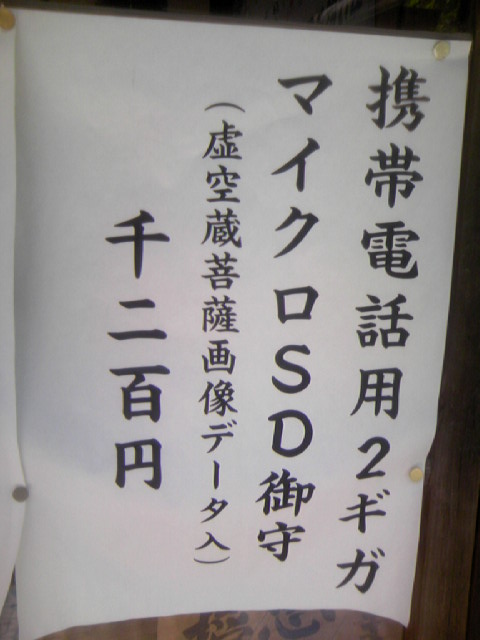 携帯電話用2ギガ
マイクロSD御守
(虚空蔵菩薩画像データ入)
千二百円